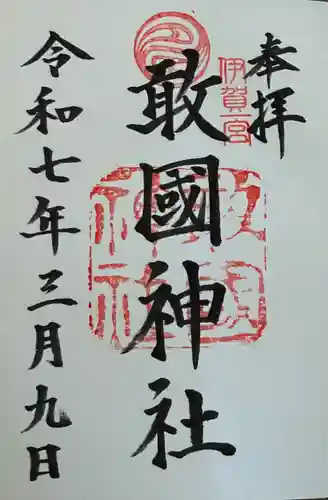 奉拝
伊賀一宮
敢國神社
敢國神社
令和七年三月九日